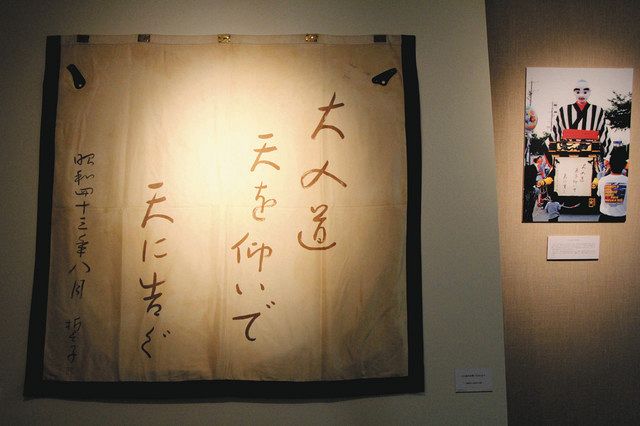 大入道
天を仰いで
天に告ぐ
昭和四十三年八月 誓子